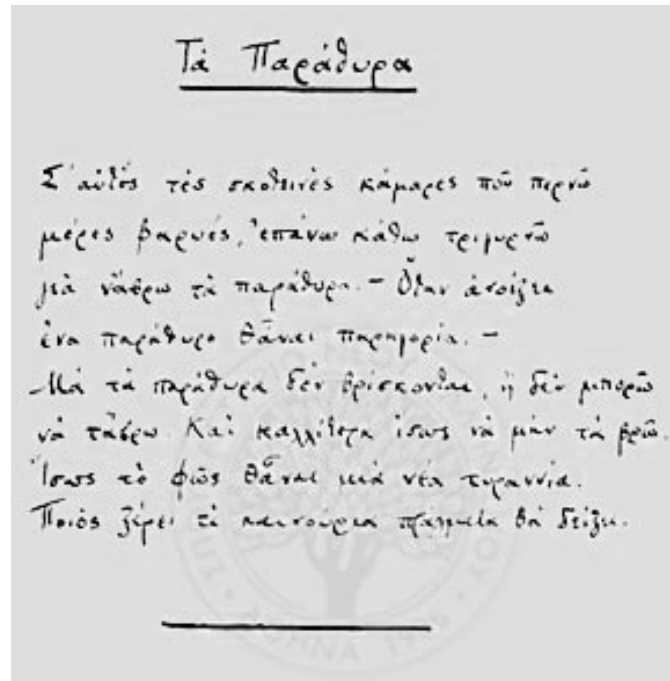 Τὰ Παράθυρα
Σ' αὐτὲς τὲς σκοτεινὲς κάμαρες, ποῦ περνῶ
μέρες βαρυές, ἐπάνω κάτω τριγυρνῶ
γιὰ νἄβρω τὰ παράθυρα.— Ὅταν ἀνοίξει
ἕνα παράθυρο θἆναι παρηγορία.—
Μὰ τὰ παράθυρα δὲν βρίσκονται, ἢ δὲν μπορῶ
νὰ τἄβρω. Καὶ καλλίτερα ἴσως νὰ μὴν τὰ βρῶ.
Ἴσως τὸ φῶς θἆναι μιὰ νέα τυραννία.
Ποιὸς ξέρει τί καινούρια πράγματα θὰ δείξει.
ΝΕΟΥ
ΑΘΗΝΑ